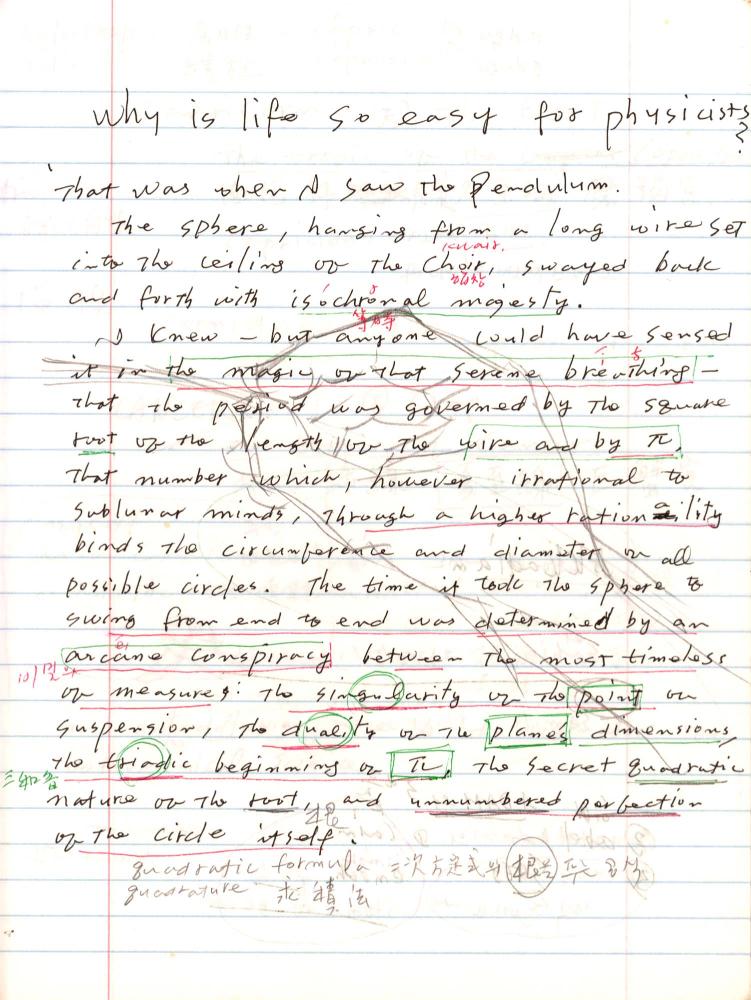 Why is life so easy for physicists?
That was when I saw the Pendulum.
The sphere, hanging from a long wire set
into the ceiling of the Choir, swayed back
and forth with isochronal majesty.
I knew – but anyone could have sensed
it in the magic of that serene breathing –
that the period was governed by the square
root of the length of the wire and by π,
that number which, however irrational to
sublunar minds, through a higher rationality
binds the circumference and diameter of all
possible circles. The time it took the sphere to
swing from end to end was determined by an
arcane conspiracy between the most timeless
of measures: the singularity of the point of
suspension, the duality of the planes dimensions,
三和音
the triadic beginning of π, the secret quadratic
nature of the root, and unnumbered perfection
根
of the circle itself.
quadratic formula 二次方定式의 根의 公式
quadrature 求積法